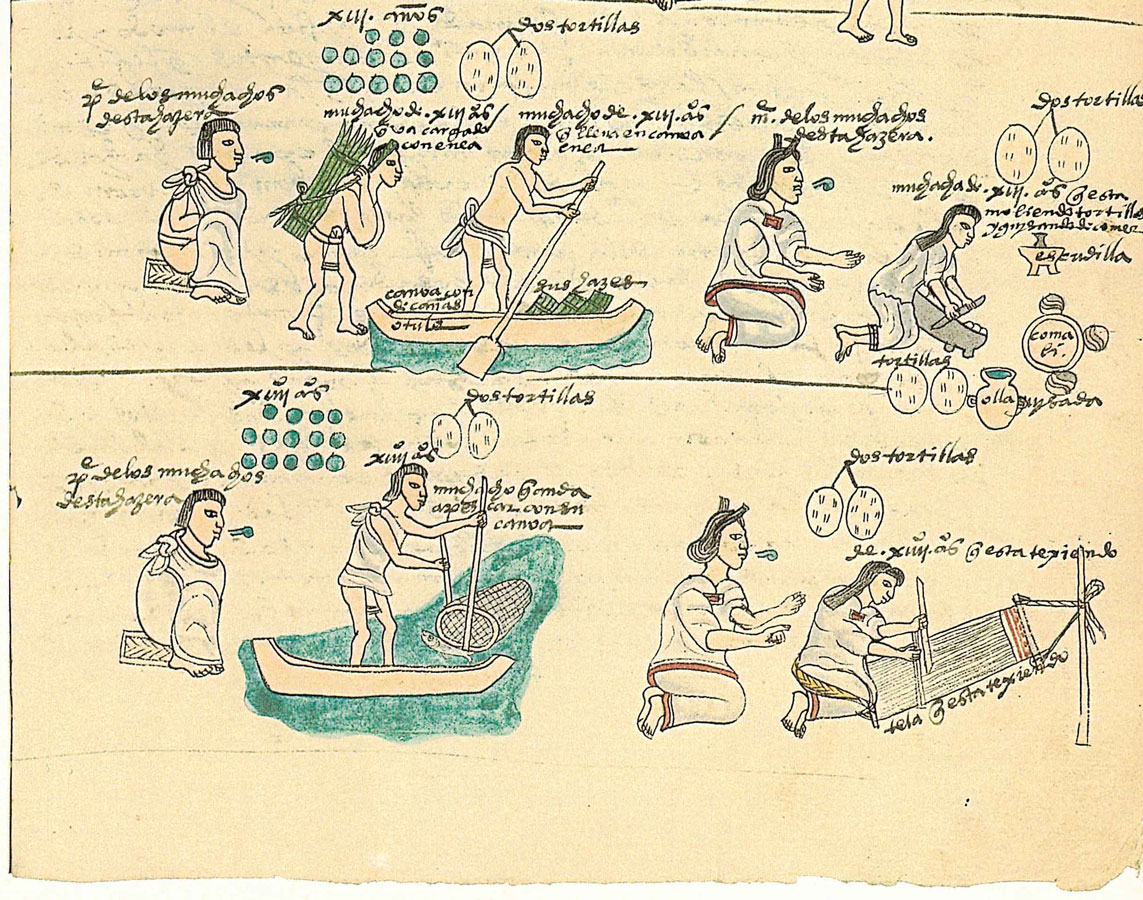 xiii. años
dos tortillas
pᵉ. de los muchachos
desta hazera
muchacho de. xiii. aºs
q̃ va cargado
con enea
muchacho de. xiii. aºs
q̃ lleua en canoa
enea
mᵉ. de los muchachos
desta hazera.
dos tortillas
muchacha de. xiii. aºs q̃ esta
moliendo tortillas
y guisando de comer
escudilla
canoa con
otule
sus hazes
comali.
tortillas
olla
guisada
xiiii aºs
dos tortillas
pᵉ de los muchachos
desta hazera
xiiii aºs
muchacho q̃ anda
a pescar con su
canoa
dos tortillas
de. xiiii. aºs q̃ esta texiendo
tela q̃ esta texiendo